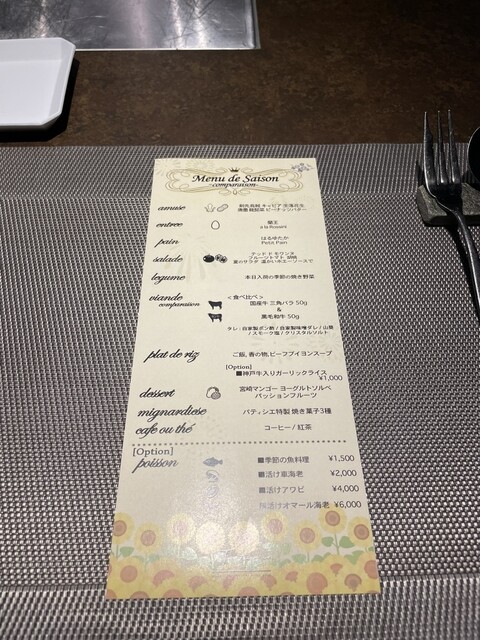 Menu de Saison
-comparaison-
amuse
entree
蘭王
à la Rossini
pain
はるゆたか
Petit Pain
salade
フルーツトマト 胡桃
夏のサラダ 温かいホエーソースで
legume
本日入荷の季節の焼き野菜
viande
comparaison
<食べ比べ>
国産牛 三角バラ 50g
&
黒毛和牛 50g
タレ / 自家製ポン酢 / 自家製味噌ダレ / 山葵
/ スモーク塩 / クリスタルソルト
plat de riz
ご飯, 香の物, ビーフブイヨンスープ
[Option]
■神戸牛入りガーリックライス
¥1,000
dessert
宮崎マンゴー ヨーグルトソルベ
パッションフルーツ
mignardiese
パティシエ特製 焼き菓子3種
cafe ou thé
コーヒー / 紅茶
[Option]
poisson
■季節の魚料理 ¥1,500
■活け車海老 ¥2,000
■活けアワビ ¥4,000
■活けオマール海老 ¥6,000